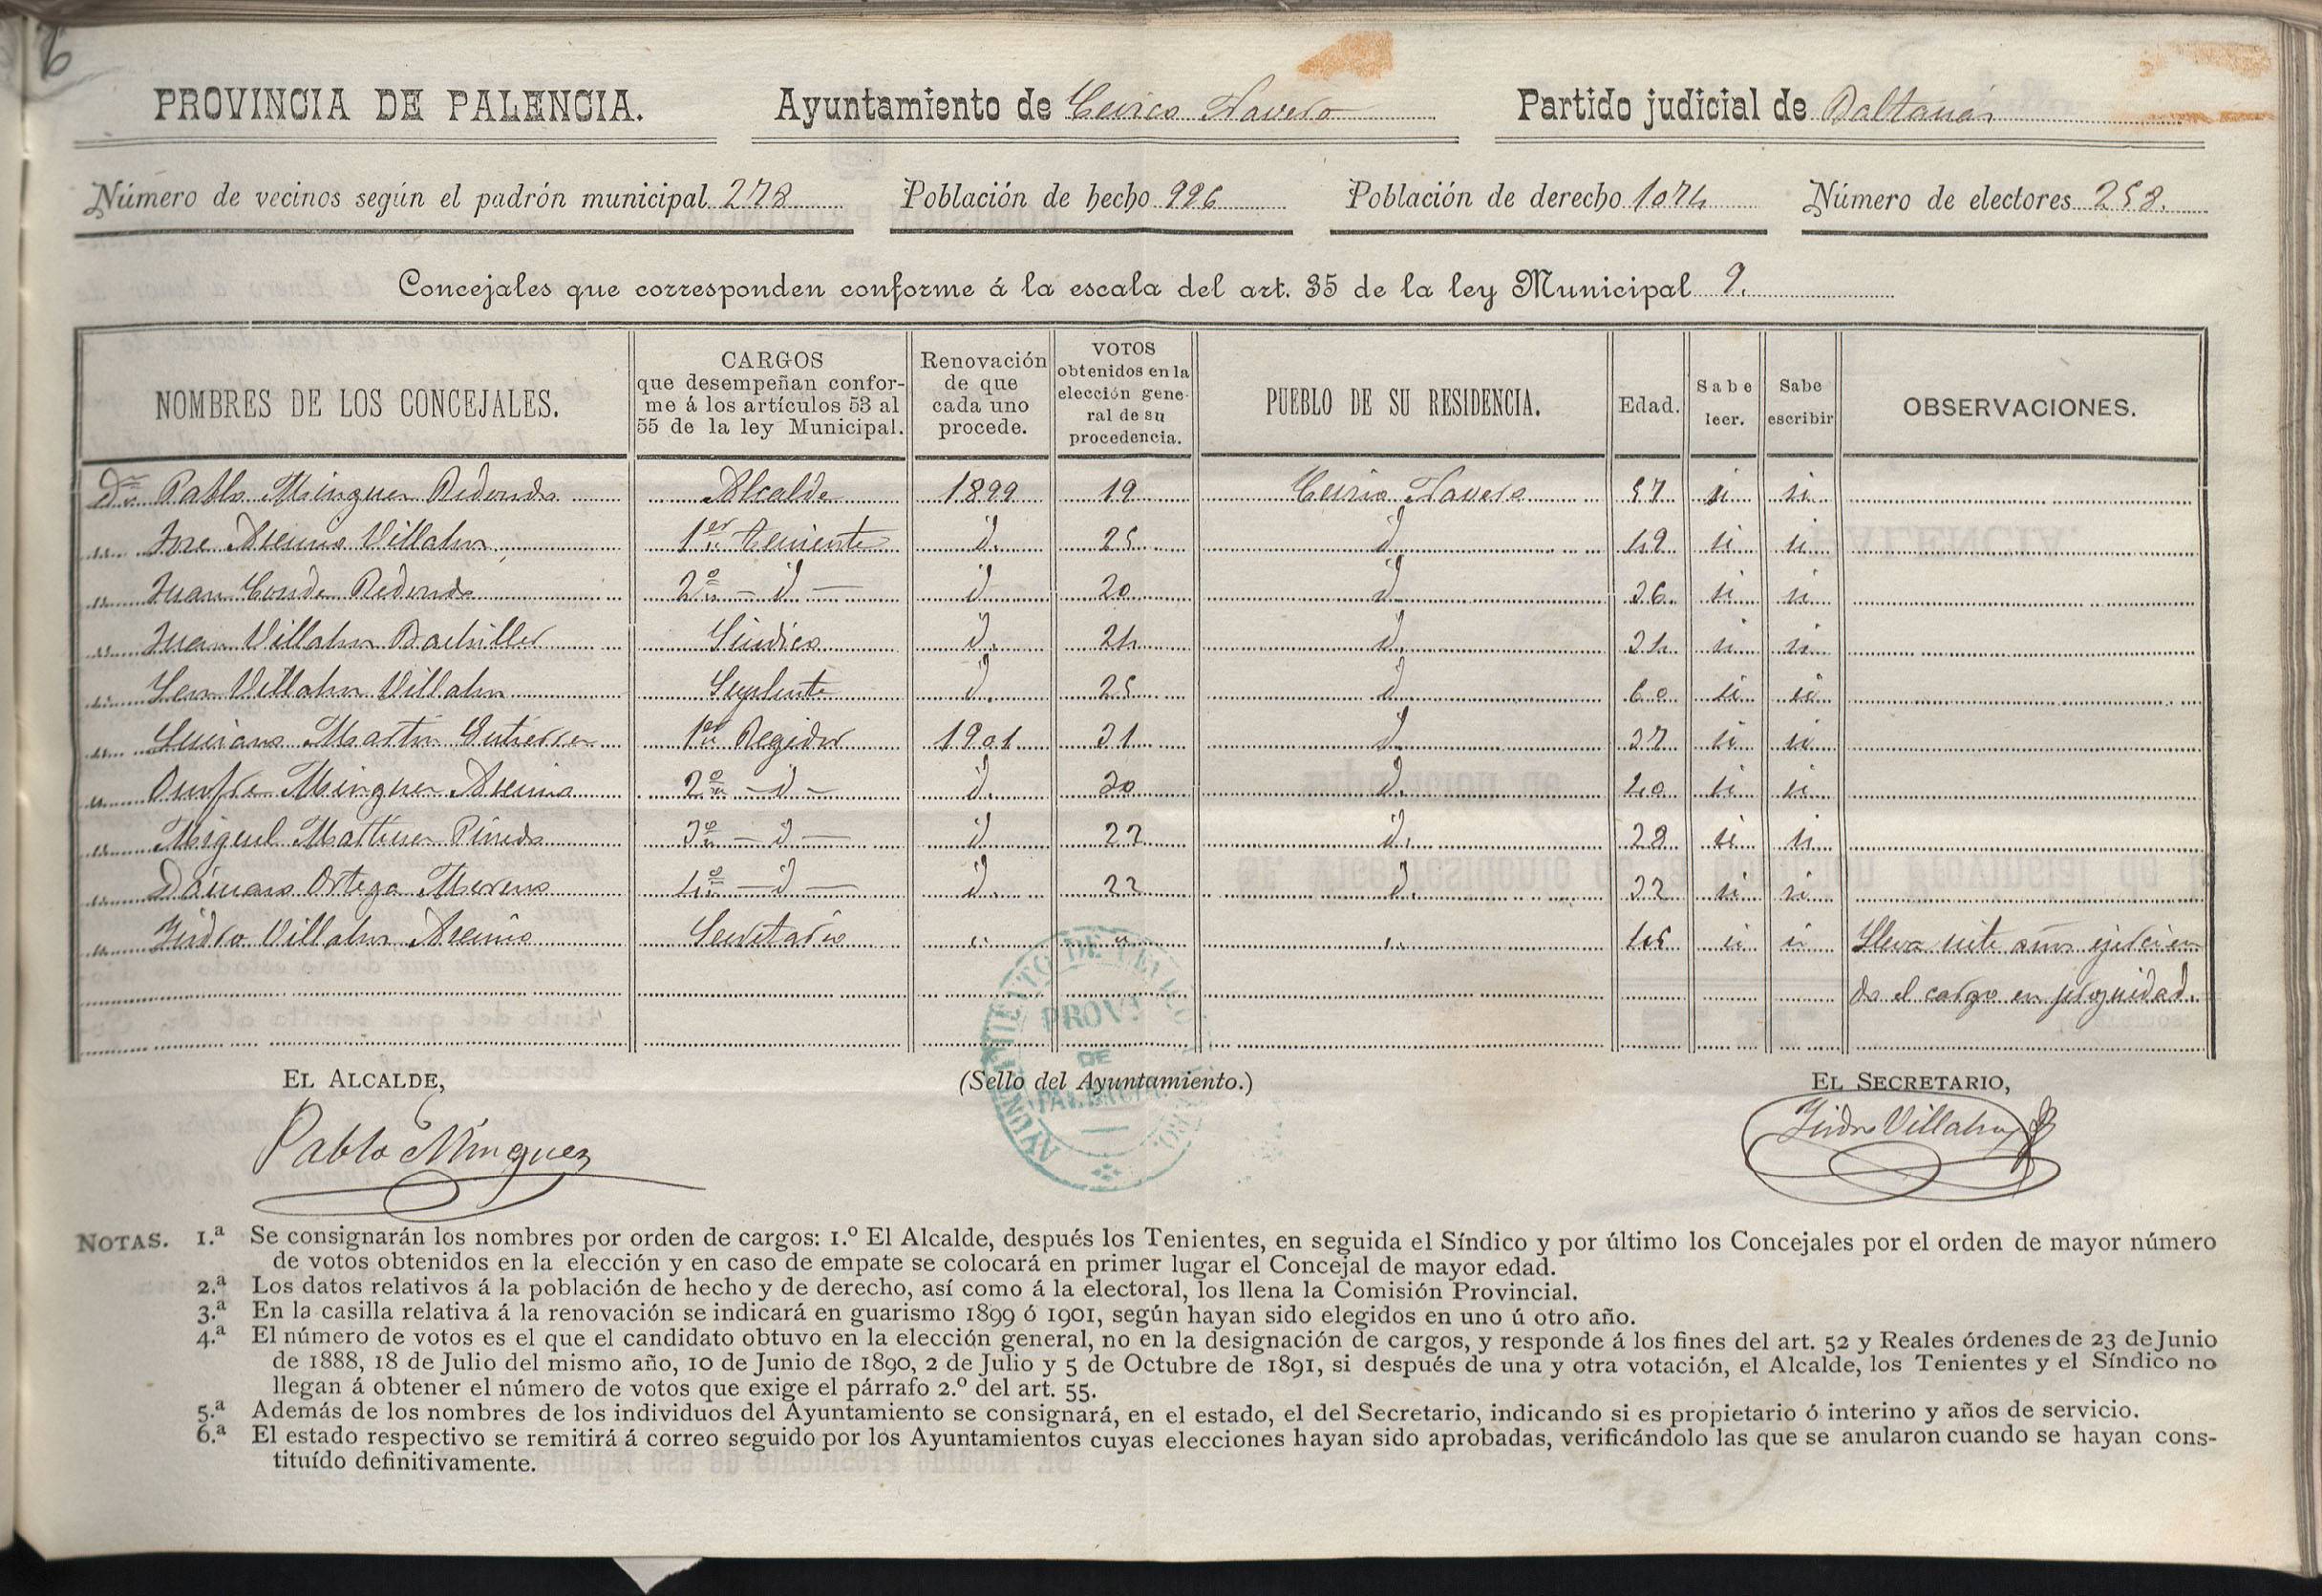 6
PROVINCIA DE PALENCIA. Ayuntamiento de Cevico Navero Partido judicial de Baltanás
Número de vecinos según el padrón municipal 278 Población de hecho 996 Población de derecho 1074 Número de electores 258.
Concejales que corresponden conforme á la escala del art. 35 de la ley Municipal 9.
NOMBRES DE LOS CONCEJALES. CARGOS que desempeñan conforme á los artículos 53 al 55 de la ley Municipal. Renovación de que cada uno procede. VOTOS obtenidos en la elección general de su procedencia. PUEBLO DE SU RESIDENCIA. Edad. Sabe leer. Sabe escribir OBSERVACIONES.
Dn Pablo Minguez Redondo Alcalde 1899 19 Cevico Navero 57 si si
" Jose Asenjo Villahoz 1er teniente id. 25 id. 49 si si
" Juan Conde Redondo 2º - id - id 20 id. 36 si si
" Juan Villahoz Bachiller Sindico id. 24 id. 34 si si
" Leon Villahoz Villahoz Suplente id. 25 id. 60 si si
" Luciano Martin Gutierrez 1er Regidor 1901 31 id. 37 si si
" Onofre Minguez Asenjo 2º - id - id. 30 id. 40 si si
" Miguel Martinez Pineda 3º - id - id 22 id. 28 si si
" Damaso Ortega Moreno 4º - id - id. 22 id. 32 si si
" Isidro Villahoz Asenjo Secretario " " " 46 si si Lleva siete años ejercien
do el cargo en propiedad.
EL ALCALDE, (Sello del Ayuntamiento.) EL SECRETARIO,
Pablo Minguez Isidro Villahoz
PROVA DE PALENCIA
NOTAS. 1.ª Se consignarán los nombres por orden de cargos: 1.º El Alcalde, después los Tenientes, en seguida el Síndico y por último los Concejales por el orden de mayor número
de votos obtenidos en la elección y en caso de empate se colocará en primer lugar el Concejal de mayor edad.
2.ª Los datos relativos á la población de hecho y de derecho, así como á la electoral, los llena la Comisión Provincial.
3.ª En la casilla relativa á la renovación se indicará en guarismo 1899 ó 1901, según hayan sido elegidos en uno ú otro año.
4.ª El número de votos es el que el candidato obtuvo en la elección general, no en la designación de cargos, y responde á los fines del art. 52 y Reales órdenes de 23 de Junio
de 1888, 18 de Julio del mismo año, 10 de Junio de 1890, 2 de Julio y 5 de Octubre de 1891, si después de una y otra votación, el Alcalde, los Tenientes y el Síndico no
llegan á obtener el número de votos que exige el párrafo 2.º del art. 55.
5.ª Además de los nombres de los individuos del Ayuntamiento se consignará, en el estado, el del Secretario, indicando si es propietario ó interino y años de servicio.
6.ª El estado respectivo se remitirá á correo seguido por los Ayuntamientos cuyas elecciones hayan sido aprobadas, verificándolo las que se anularon cuando se hayan cons-
tituído definitivamente.